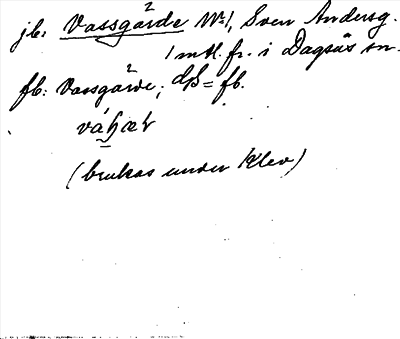 jb: Vassgärde Nr 1, Sven Andersg.
1 mtl. fr. i Dagsås sn.
fb: Vassgärde; dß = fb.
(brukas under Klev)